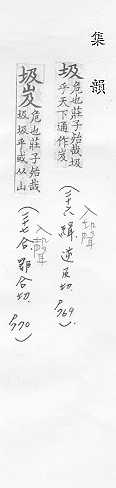 集韻
圾 危也莊子殆哉圾
乎天下通作岌
入聲
(二十六緝 逆及切. p769.)
圾岌 危也莊子殆哉
圾圾乎或从山
入聲
(二十七合. 鄂合切. p770.)